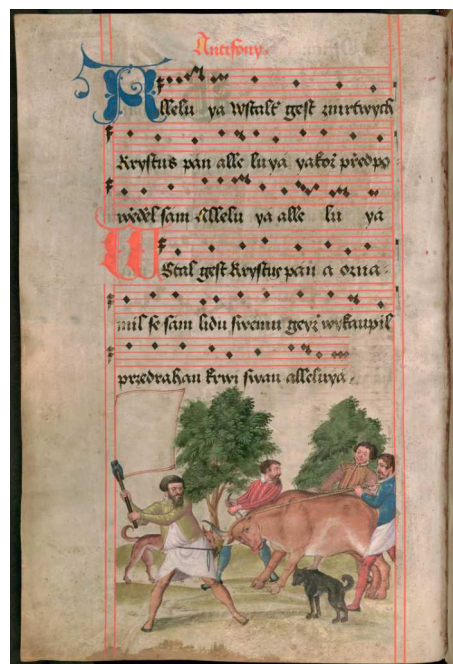 Antifony
Allelu ya Wstalt gest zmrtwych
Krystus pan alle luya yakoż przedpo
wědel sam Allelu ya alle lu ya
Wstal gest Krystus pan a ozna-
mil se sam lidu swemu geyż wykaupil
przedrahau krwi swau alleluya